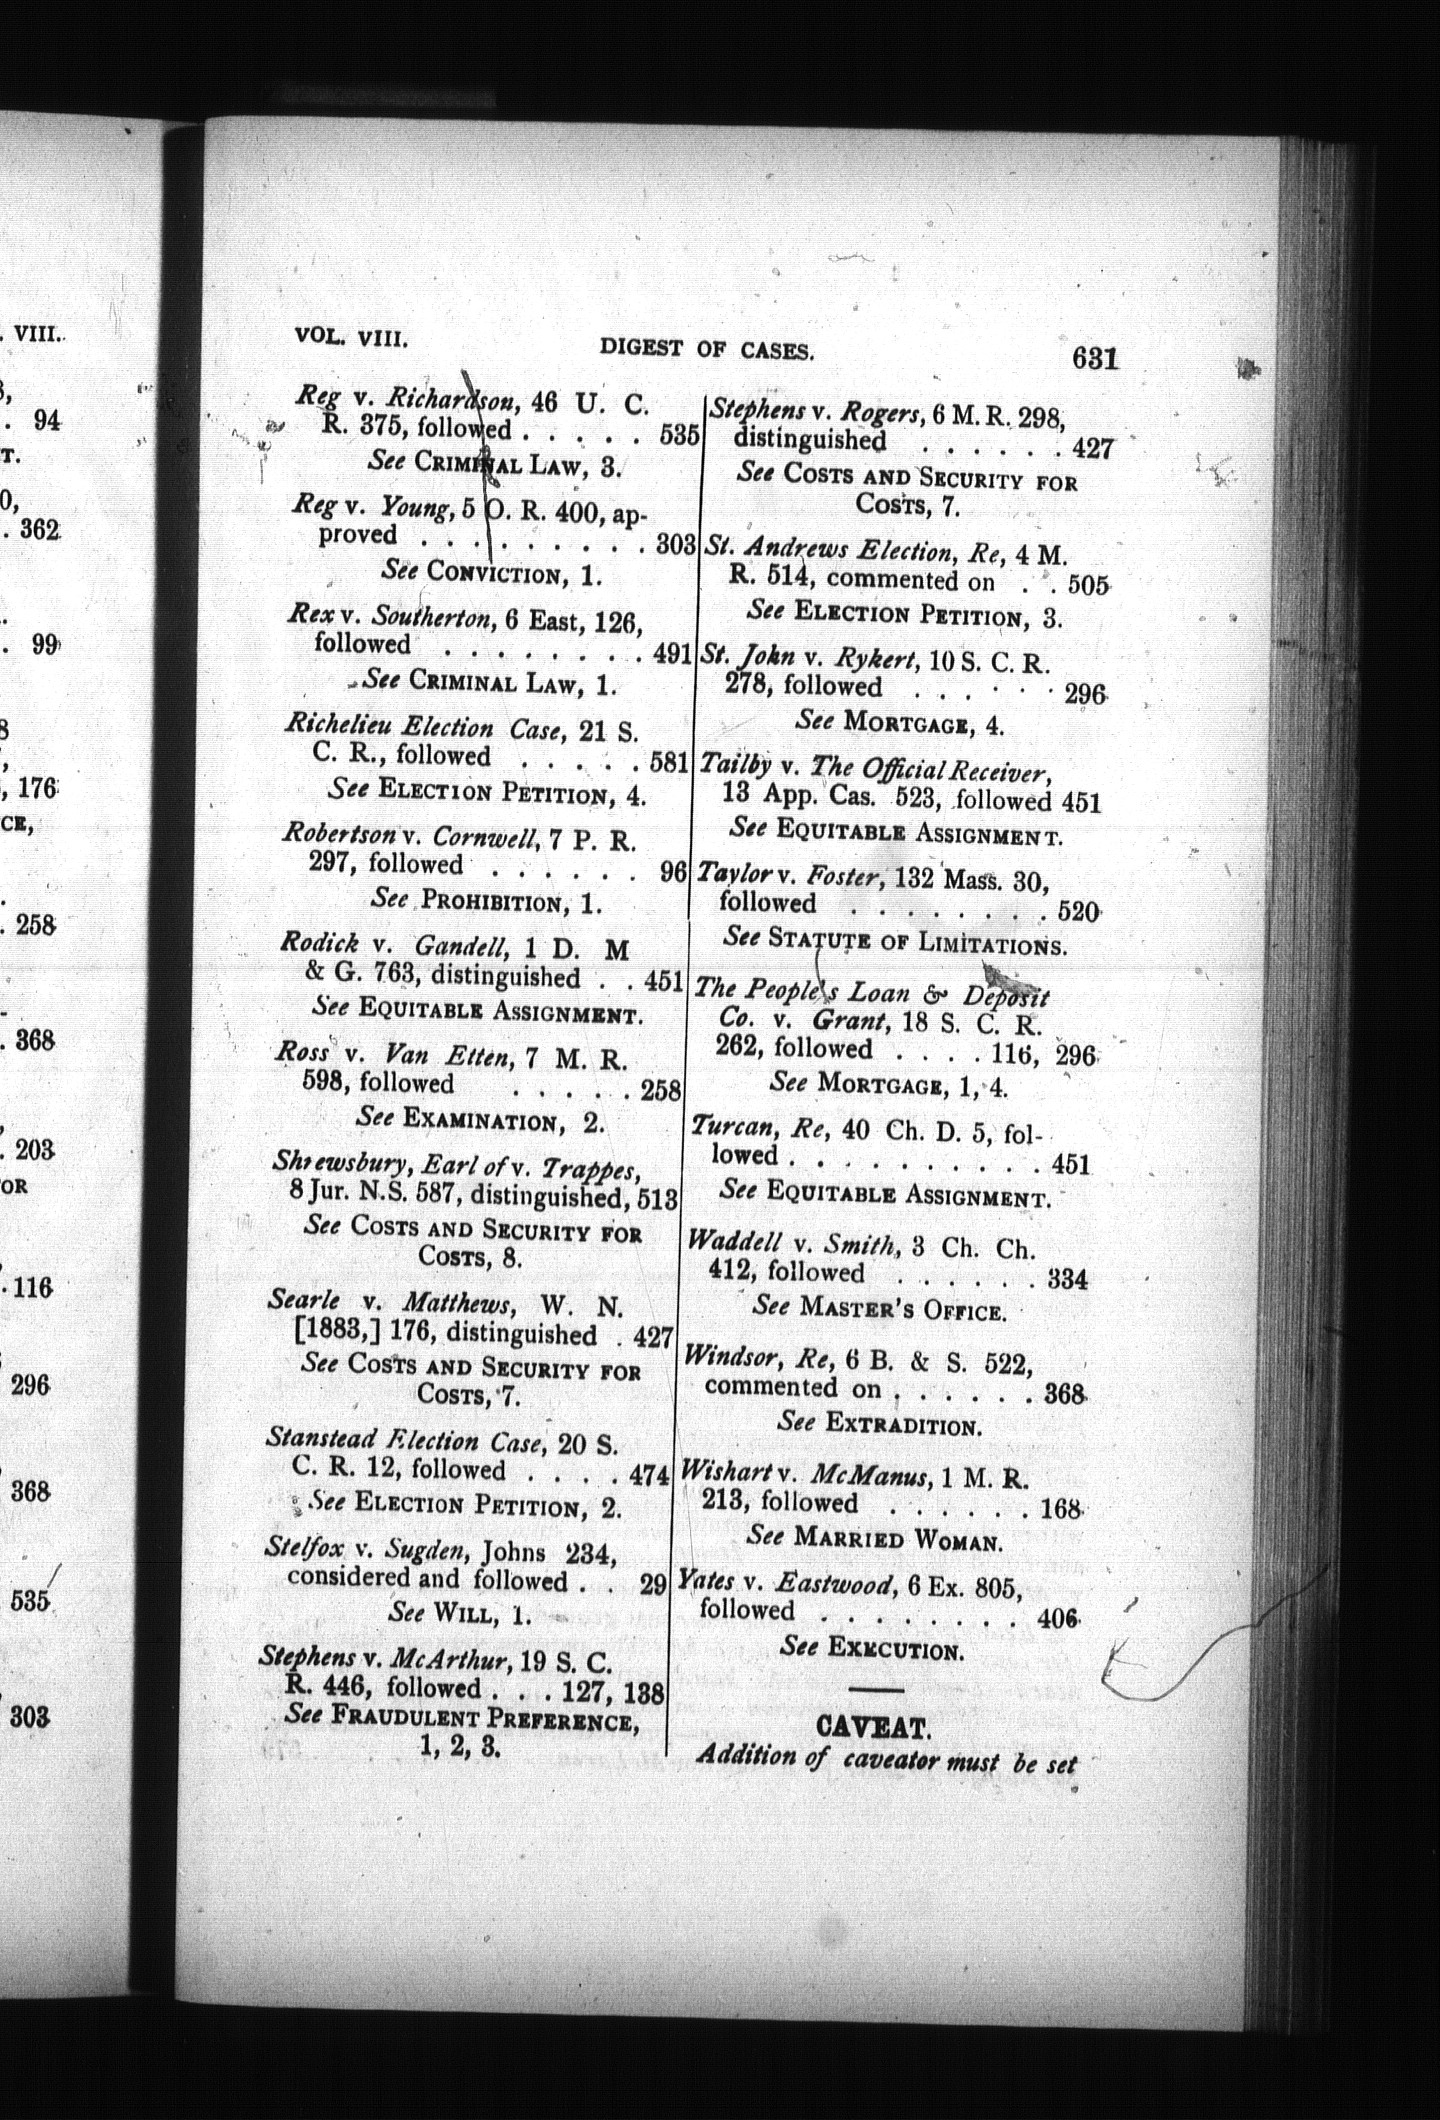 VOL. VIII. DIGEST OF CASES. 631
Reg v. Richardson, 46 U. C.
R. 375, followed . . . . . 535
See CRIMINAL LAW, 3.
Reg v. Young, 5 O. R. 400, ap-
proved . . . . . . . . . 303
See CONVICTION, 1.
Rex v. Southerton, 6 East, 126,
followed . . . . . . . . 491
See CRIMINAL LAW, 1.
Richelieu Election Case, 21 S.
C. R., followed . . . . . 581
See ELECTION PETITION, 4.
Robertson v. Cornwell, 7 P. R.
297, followed . . . . . . 96
See PROHIBITION, 1.
Rodick v. Gandell, 1 D. M
& G. 763, distinguished . . 451
See EQUITABLE ASSIGNMENT.
Ross v. Van Etten, 7 M. R.
598, followed . . . . . 258
See EXAMINATION, 2.
Shrewsbury, Earl of v. Trappes,
8 Jur. N.S. 587, distinguished, 513
See COSTS AND SECURITY FOR
COSTS, 8.
Searle v. Matthews, W. N.
[1883,] 176, distinguished . 427
See COSTS AND SECURITY FOR
COSTS, 7.
Stanstead Election Case, 20 S.
C. R. 12, followed . . . . 474
See ELECTION PETITION, 2.
Stelfox v. Sugden, Johns 234,
considered and followed . . 29
See WILL, 1.
Stephens v. McArthur, 19 S. C.
R. 446, followed . . . 127, 138
See FRAUDULENT PREFERENCE,
1, 2, 3.
Stephens v. Rogers, 6 M. R. 298,
distinguished . . . . . . 427
See COSTS AND SECURITY FOR
COSTS, 7.
St. Andrews Election, Re, 4 M.
R. 514, commented on . . 505
See ELECTION PETITION, 3.
St. John v. Rykert, 10 S. C. R.
278, followed . . . . . . 296
See MORTGAGE, 4.
Tailby v. The Official Receiver,
13 App. Cas. 523, followed 451
See EQUITABLE ASSIGNMENT.
Taylor v. Foster, 132 Mass. 30,
followed . . . . . . . . 520
See STATUTE OF LIMITATIONS.
The People's Loan & Deposit
Co. v. Grant, 18 S. C. R.
262, followed . . . . 116, 296
See MORTGAGE, 1, 4.
Turcan, Re, 40 Ch. D. 5, fol-
lowed . . . . . . . . . . 451
See EQUITABLE ASSIGNMENT.
Waddell v. Smith, 3 Ch. Ch.
412, followed . . . . . . 334
See MASTER'S OFFICE.
Windsor, Re, 6 B. & S. 522,
commented on . . . . . . 368
See EXTRADITION.
Wishart v. McManus, 1 M. R.
213, followed . . . . . . 168
See MARRIED WOMAN.
Yates v. Eastwood, 6 Ex. 805,
followed . . . . . . . . 406
See EXECUTION.
CAVEAT.
Addition of caveator must be set
VIII.
. 94
T.
. 362
. 99
, 176
CE,
. 258
. 368
. 203
OR
. 116
296
368
535
303